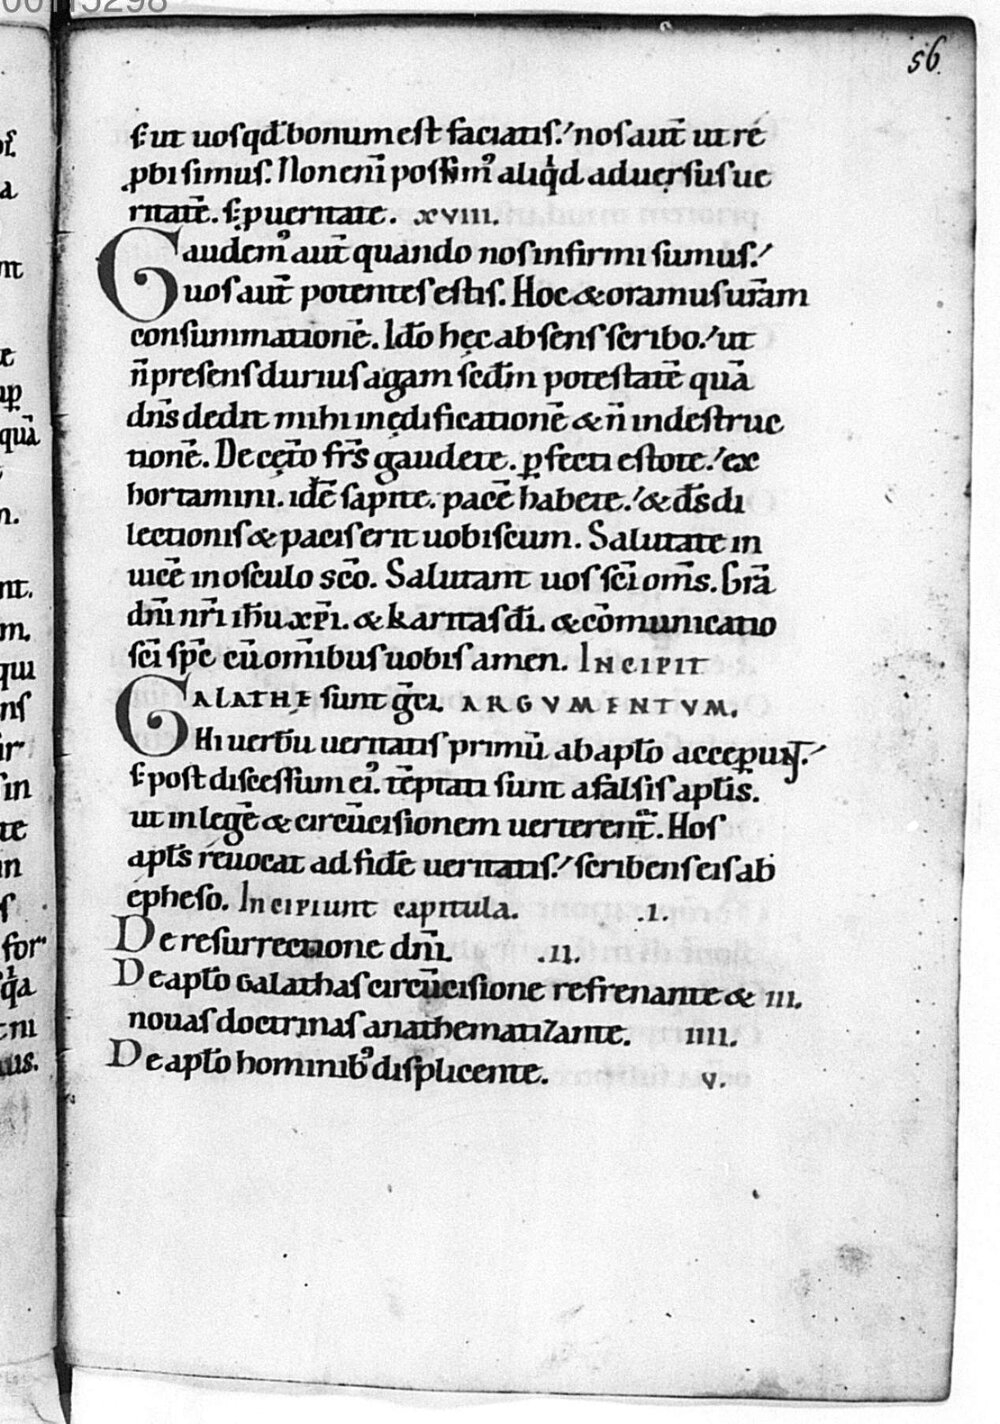 56
s; ut uos qđ bonum est faciatis. nos aut̄ ut re
ꝓbi simus. Non eni̅ possum᾿ aliqͥd aduersus ue
ritatē. s; ꝓ ueritate. xviii.
Gaudem᾿ aut̄ quando nos infirmi sumus.
uos aut̄ potentes estis. Hoc & oramus ur̄am
consummationē. Ideo hęc absens scribo. ut
n̄ presens durius agam scdm̄ potestatē quā
dn̄s dedit mihi in ędificationē & n̄ in destruc
tionē. De cęt̄o fr̄s gaudete. ꝑfecti estote. ex
hortamini. idē sapite. pacē habete. & d̄s di
lectionis & pacis erit uobiscum. Salutate in
uicē in osculo sc̄o. Salutant uos sc̄i om̄s. Gr̄a
dn̄i nr̄i ih̄u xp̄i. & karitas dī. & cōmunicatio
sc̄i sp̄c cū om̄ibus uobis amen. INCIPIT
GALATHE sunt gͬci. ARGVMENTVM.
Hi uerbū ueritatis primū ab apłō acceperunt.
s; post discessum ei᾿. tēptati sunt a falsis apłis.
ut in legē & circūcisionem uerterent̄. Hos
apłs reuocat ad fidē ueritatis. scribens eis ab
epheso. Incipiunt capitula. .i.
De resurrectione dn̄i. .ii.
De apłō galathas circūcisione refrenante & iii.
nouas doctrinas anathematizante. iiii.
De apłō hominib᾿ displicente. v.